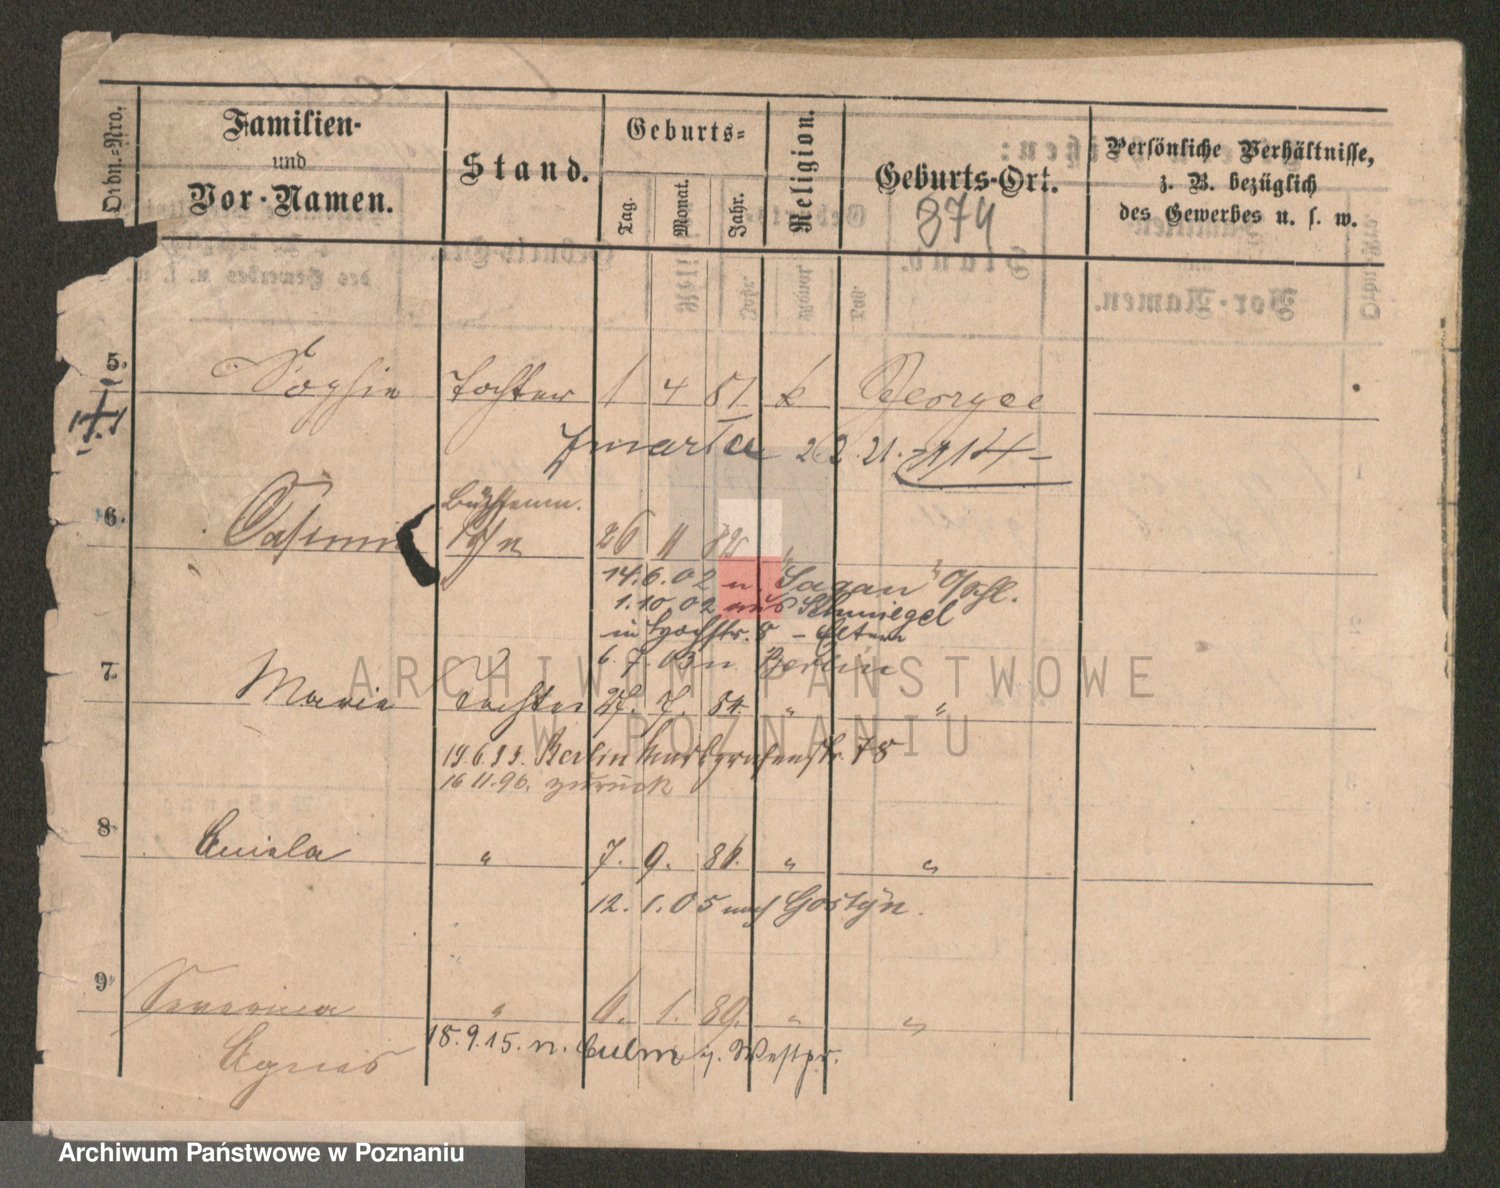 Ordn.-Nro.
Familien- und Vor-Namen.
Stand.
Geburts-
Tag. Monat. Jahr.
Religion.
Geburts-Ort.
Persönliche Verhältnisse, z. B. bezüglich des Gewerbes u. s. w.
374
5. Sophie Tochter 1 4 81 k
zmarła 2.2.21.
6. Casimir Sohn 26 11 82 " "
14.6.02 n. Sagan O/Schl.
1.10.02 aus Schmiegel
in Hochstr. 8 - Eltern
6.7.03 n Berlin
7. Marie Tochter 27. 7. 84. " "
19.6.93. Berlin Markgrafenstr. 78
16 11.96. zurück
8. Aniela " 7. 9. 86. " "
12. 1. 05 nach Gostyn.
9. Severina " 6. 1. 89. " "
Agnes
18.9.15. n. Culm i. Westpr.
ARCHIWUM PAŃSTWOWE
W POZNANIU
Archiwum Państwowe w Poznaniu